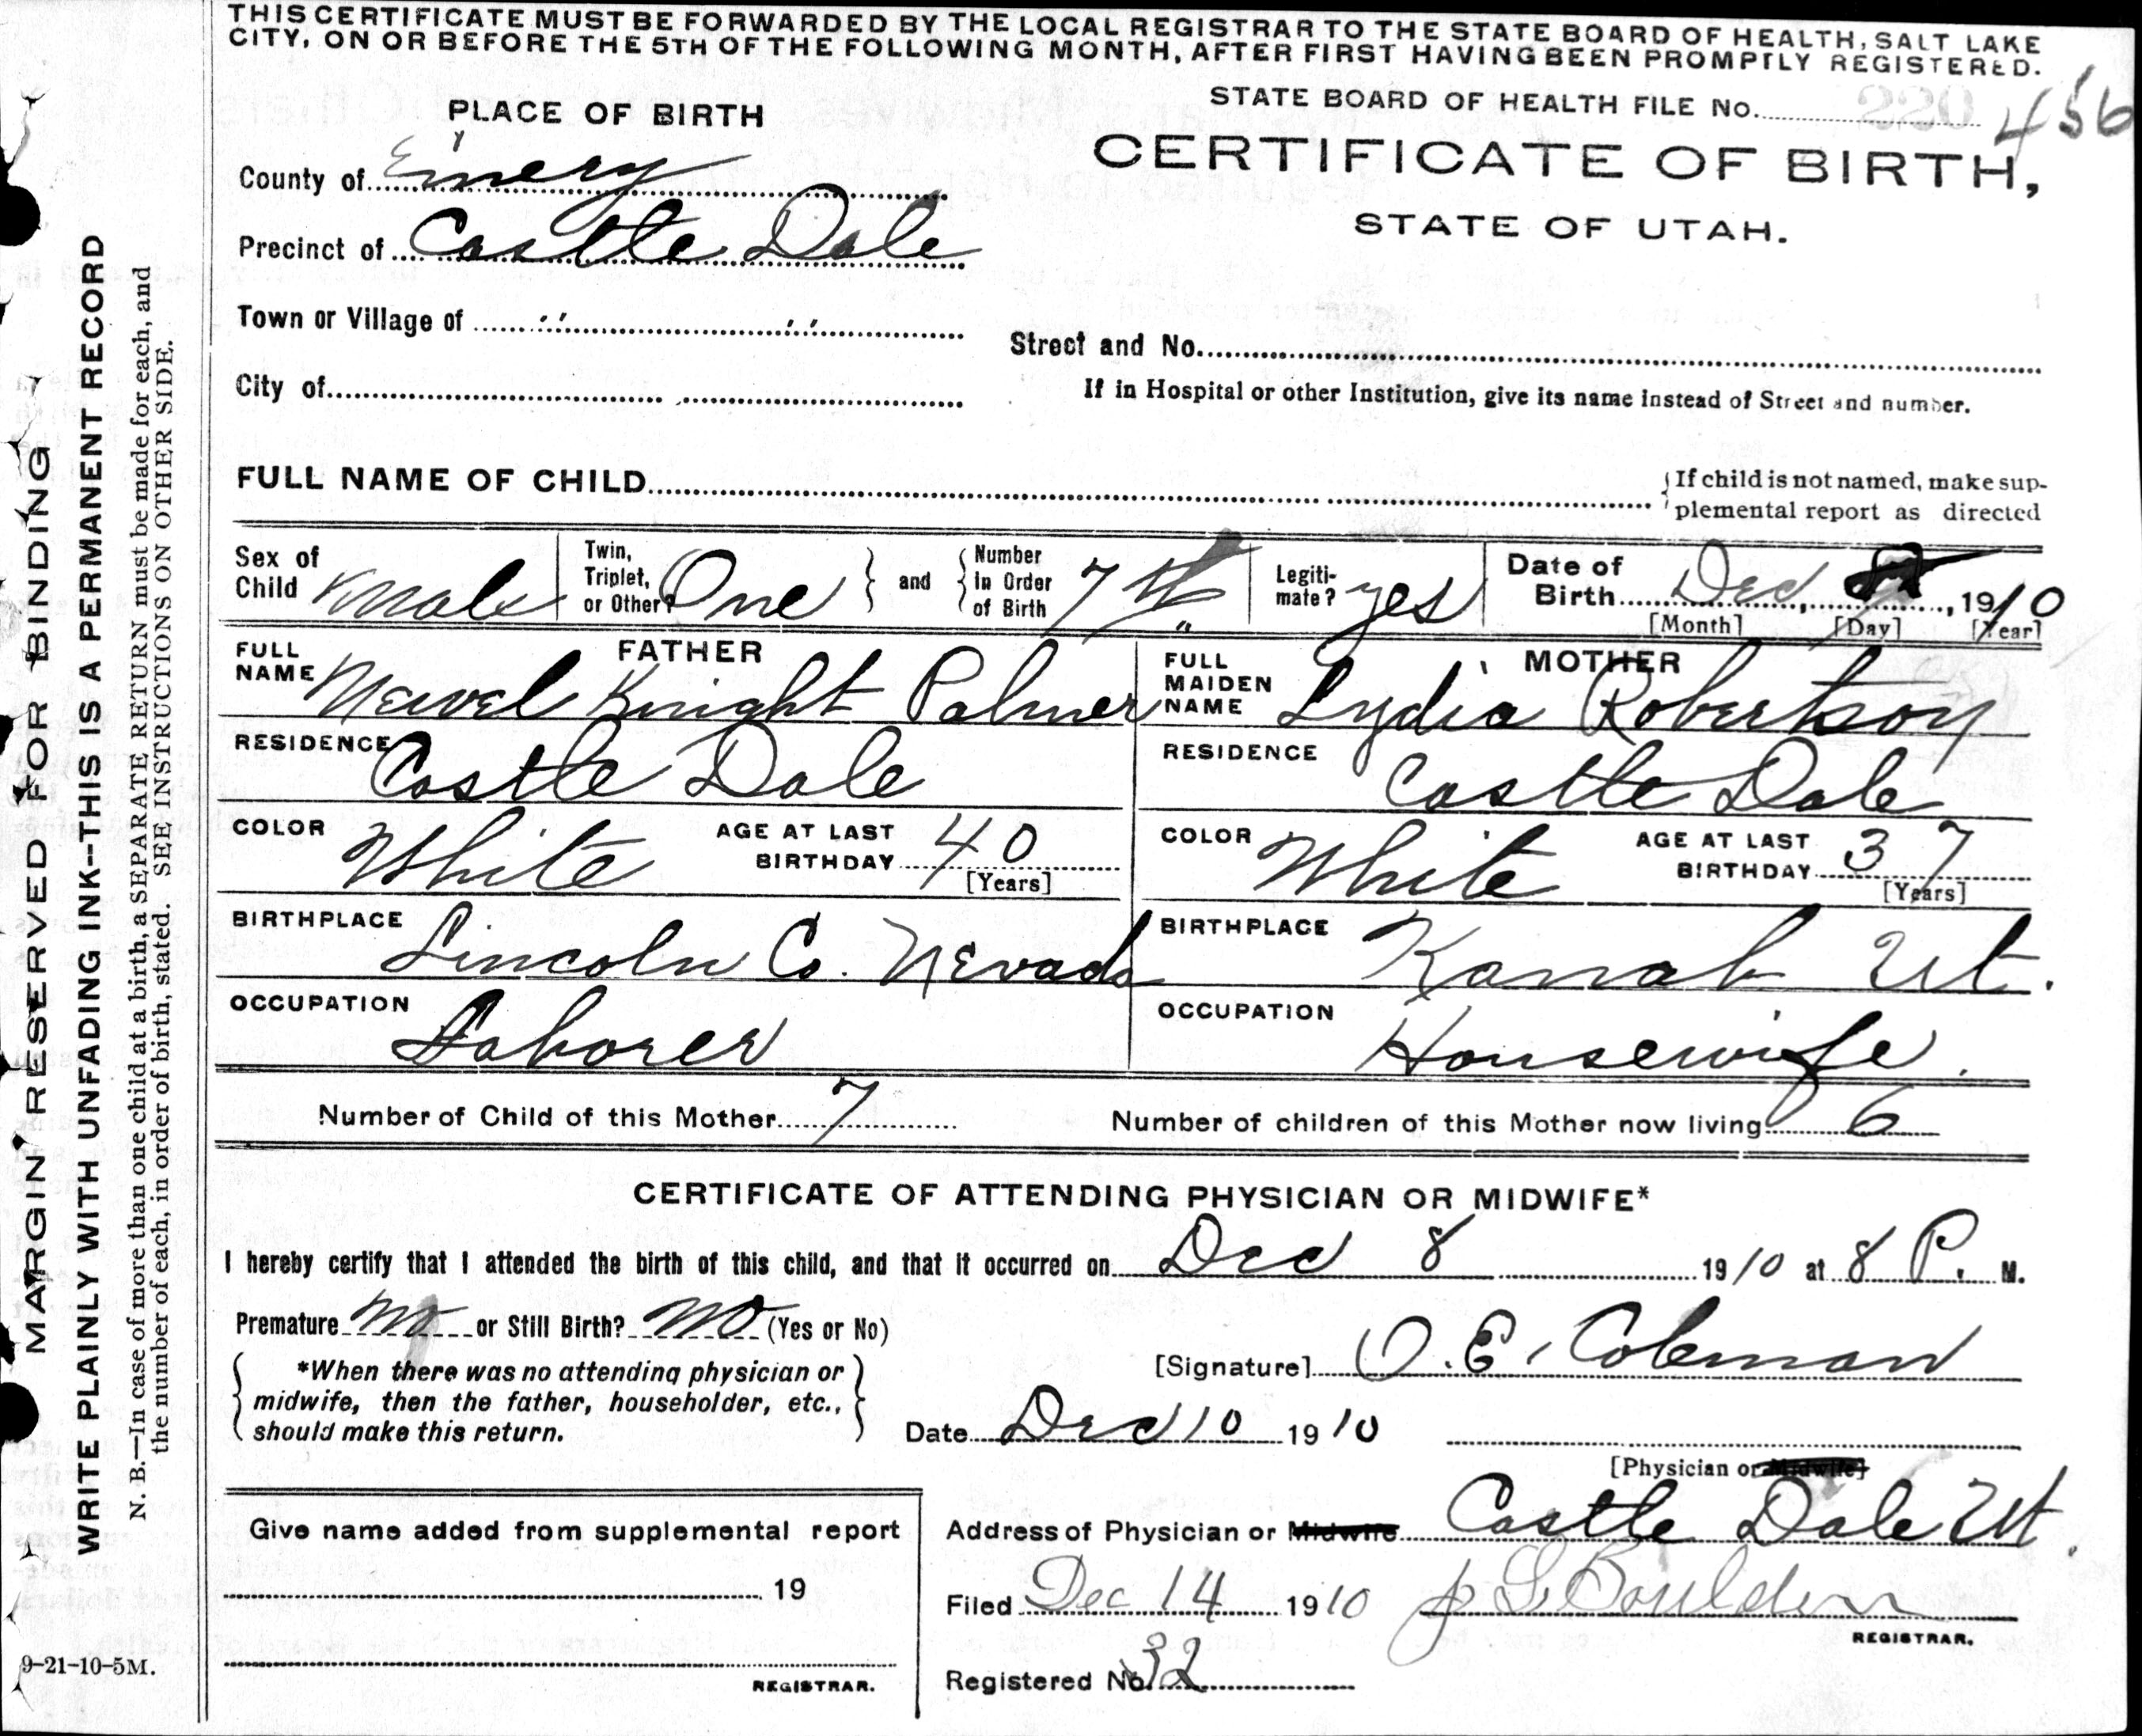 THIS CERTIFICATE MUST BE FORWARDED BY THE LOCAL REGISTRAR TO THE STATE BOARD OF HEALTH, SALT LAKE
CITY, ON OR BEFORE THE 5TH OF THE FOLLOWING MONTH, AFTER FIRST HAVING BEEN PROMPTLY REGISTERED.
STATE BOARD OF HEALTH FILE No. 220 456
CERTIFICATE OF BIRTH,
STATE OF UTAH.
PLACE OF BIRTH
County of Emery
Precinct of Castle Dale
Town or Village of " "
Street and No.
City of
If in Hospital or other Institution, give its name instead of Street and number.
FULL NAME OF CHILD
If child is not named, make sup-
plemental report as directed
Sex of Child Male
Twin, Triplet, or Other? One
and
Number in Order of Birth 7th
Legiti-mate? yes
Date of Birth Dec , 1910
[Month] [Day] [Year]
FATHER
FULL NAME Newel Knight Palmer
MOTHER
FULL MAIDEN NAME Lydia Robertson
RESIDENCE Castle Dale
RESIDENCE Castle Dale
COLOR White AGE AT LAST BIRTHDAY 40 [Years]
COLOR White AGE AT LAST BIRTHDAY 37 [Years]
BIRTHPLACE Lincoln Co. Nevada
BIRTHPLACE Kanab Ut.
OCCUPATION Laborer
OCCUPATION Housewife.
Number of Child of this Mother 7
Number of children of this Mother now living 6
CERTIFICATE OF ATTENDING PHYSICIAN OR MIDWIFE*
I hereby certify that I attended the birth of this child, and that it occurred on Dec 8 1910 at 8 P. M.
Premature no or Still Birth? no (Yes or No)
*When there was no attending physician or
midwife, then the father, householder, etc.,
should make this return.
[Signature] O. E. Coleman
Date Dec 10 1910
[Physician or Midwife]
Address of Physician or Midwife Castle Dale Ut.
Filed Dec 14 1910
REGISTRAR.
Registered No. 32
Give name added from supplemental report
19
REGISTRAR.
MARGIN RESERVED FOR BINDING
WRITE PLAINLY WITH UNFADING INK--THIS IS A PERMANENT RECORD
N. B.—In case of more than one child at a birth, a SEPARATE RETURN must be made for each, and
the number of each, in order of birth, stated. SEE INSTRUCTIONS ON OTHER SIDE.
9-21-10-5M.